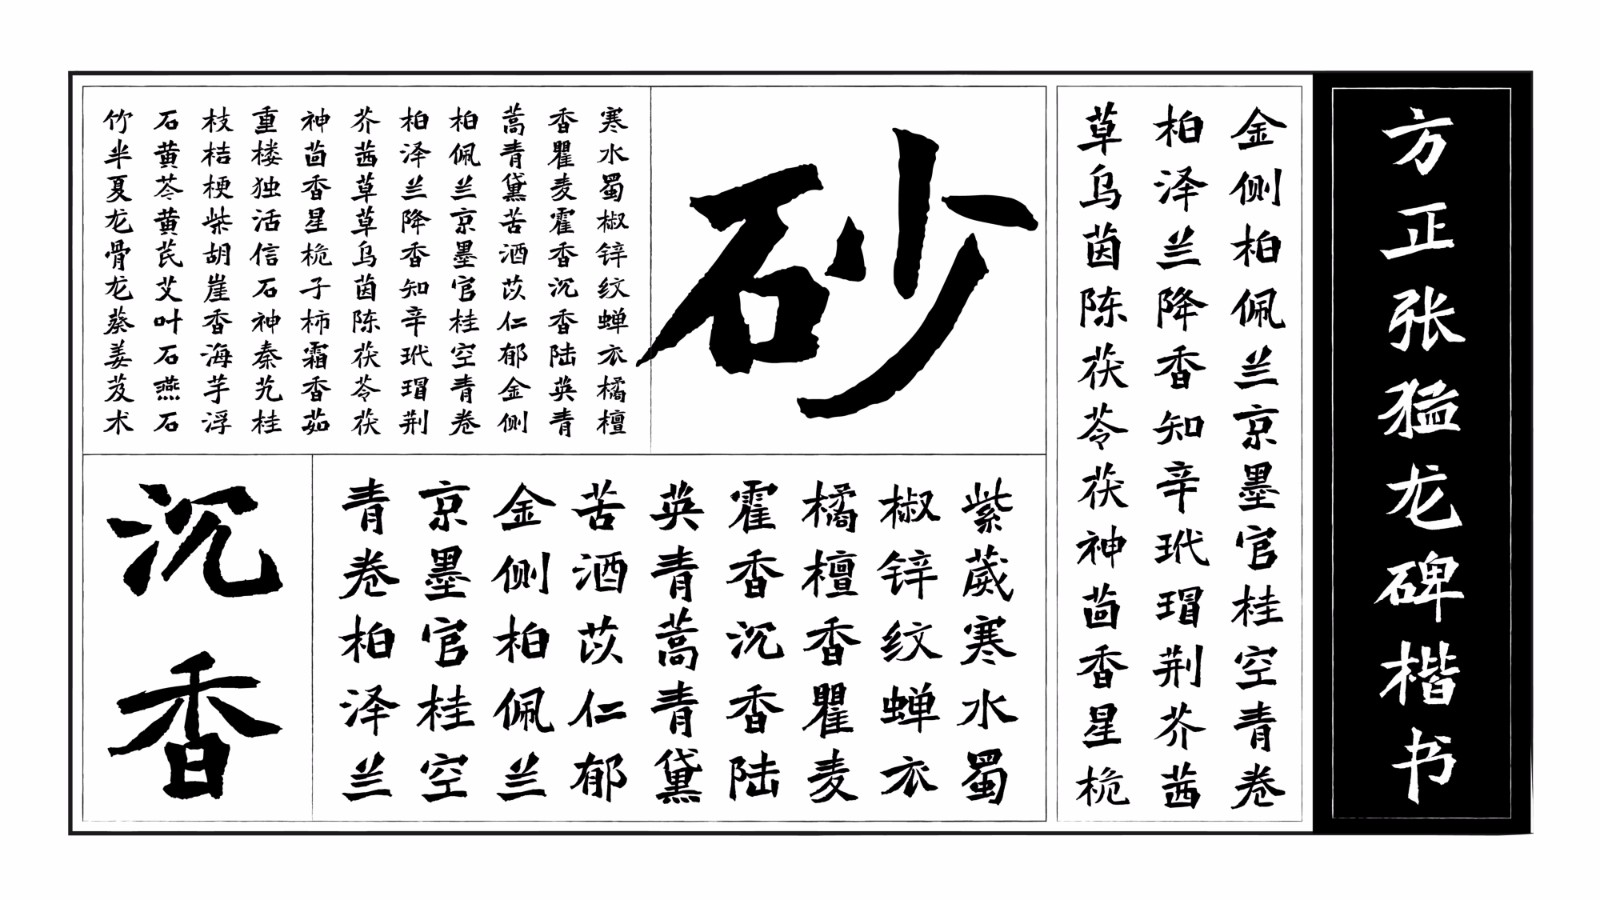 方正张猛龙碑楷书
金侧柏佩兰京墨官桂空青卷
柏泽兰降香知辛玳瑁荆芥茜
草乌茵陈茯苓茯神茴香星桅
砂
寒水蜀椒锌纹蝉衣橘檀
香瞿麦霍香沉香陆英青
蒿青黛苦酒苡仁郁金侧
柏佩兰京墨官桂空青卷
柏泽兰降香知辛玳瑁荆
芥茜草草乌茵陈茯苓茯
神茴香星桅子柿霜香茹
重楼独活信石神秦艽桂
枝桔梗柴胡崖香海芋浮
石黄芩黄芪艾叶石燕石
竹半夏龙骨龙葵姜芨术
紫葳寒水蜀
椒锌纹蝉衣
橘檀香瞿麦
霍香沉香陆
英青蒿青黛
苦酒苡仁郁
金侧柏佩兰
京墨官桂空
青卷柏泽兰
沉香